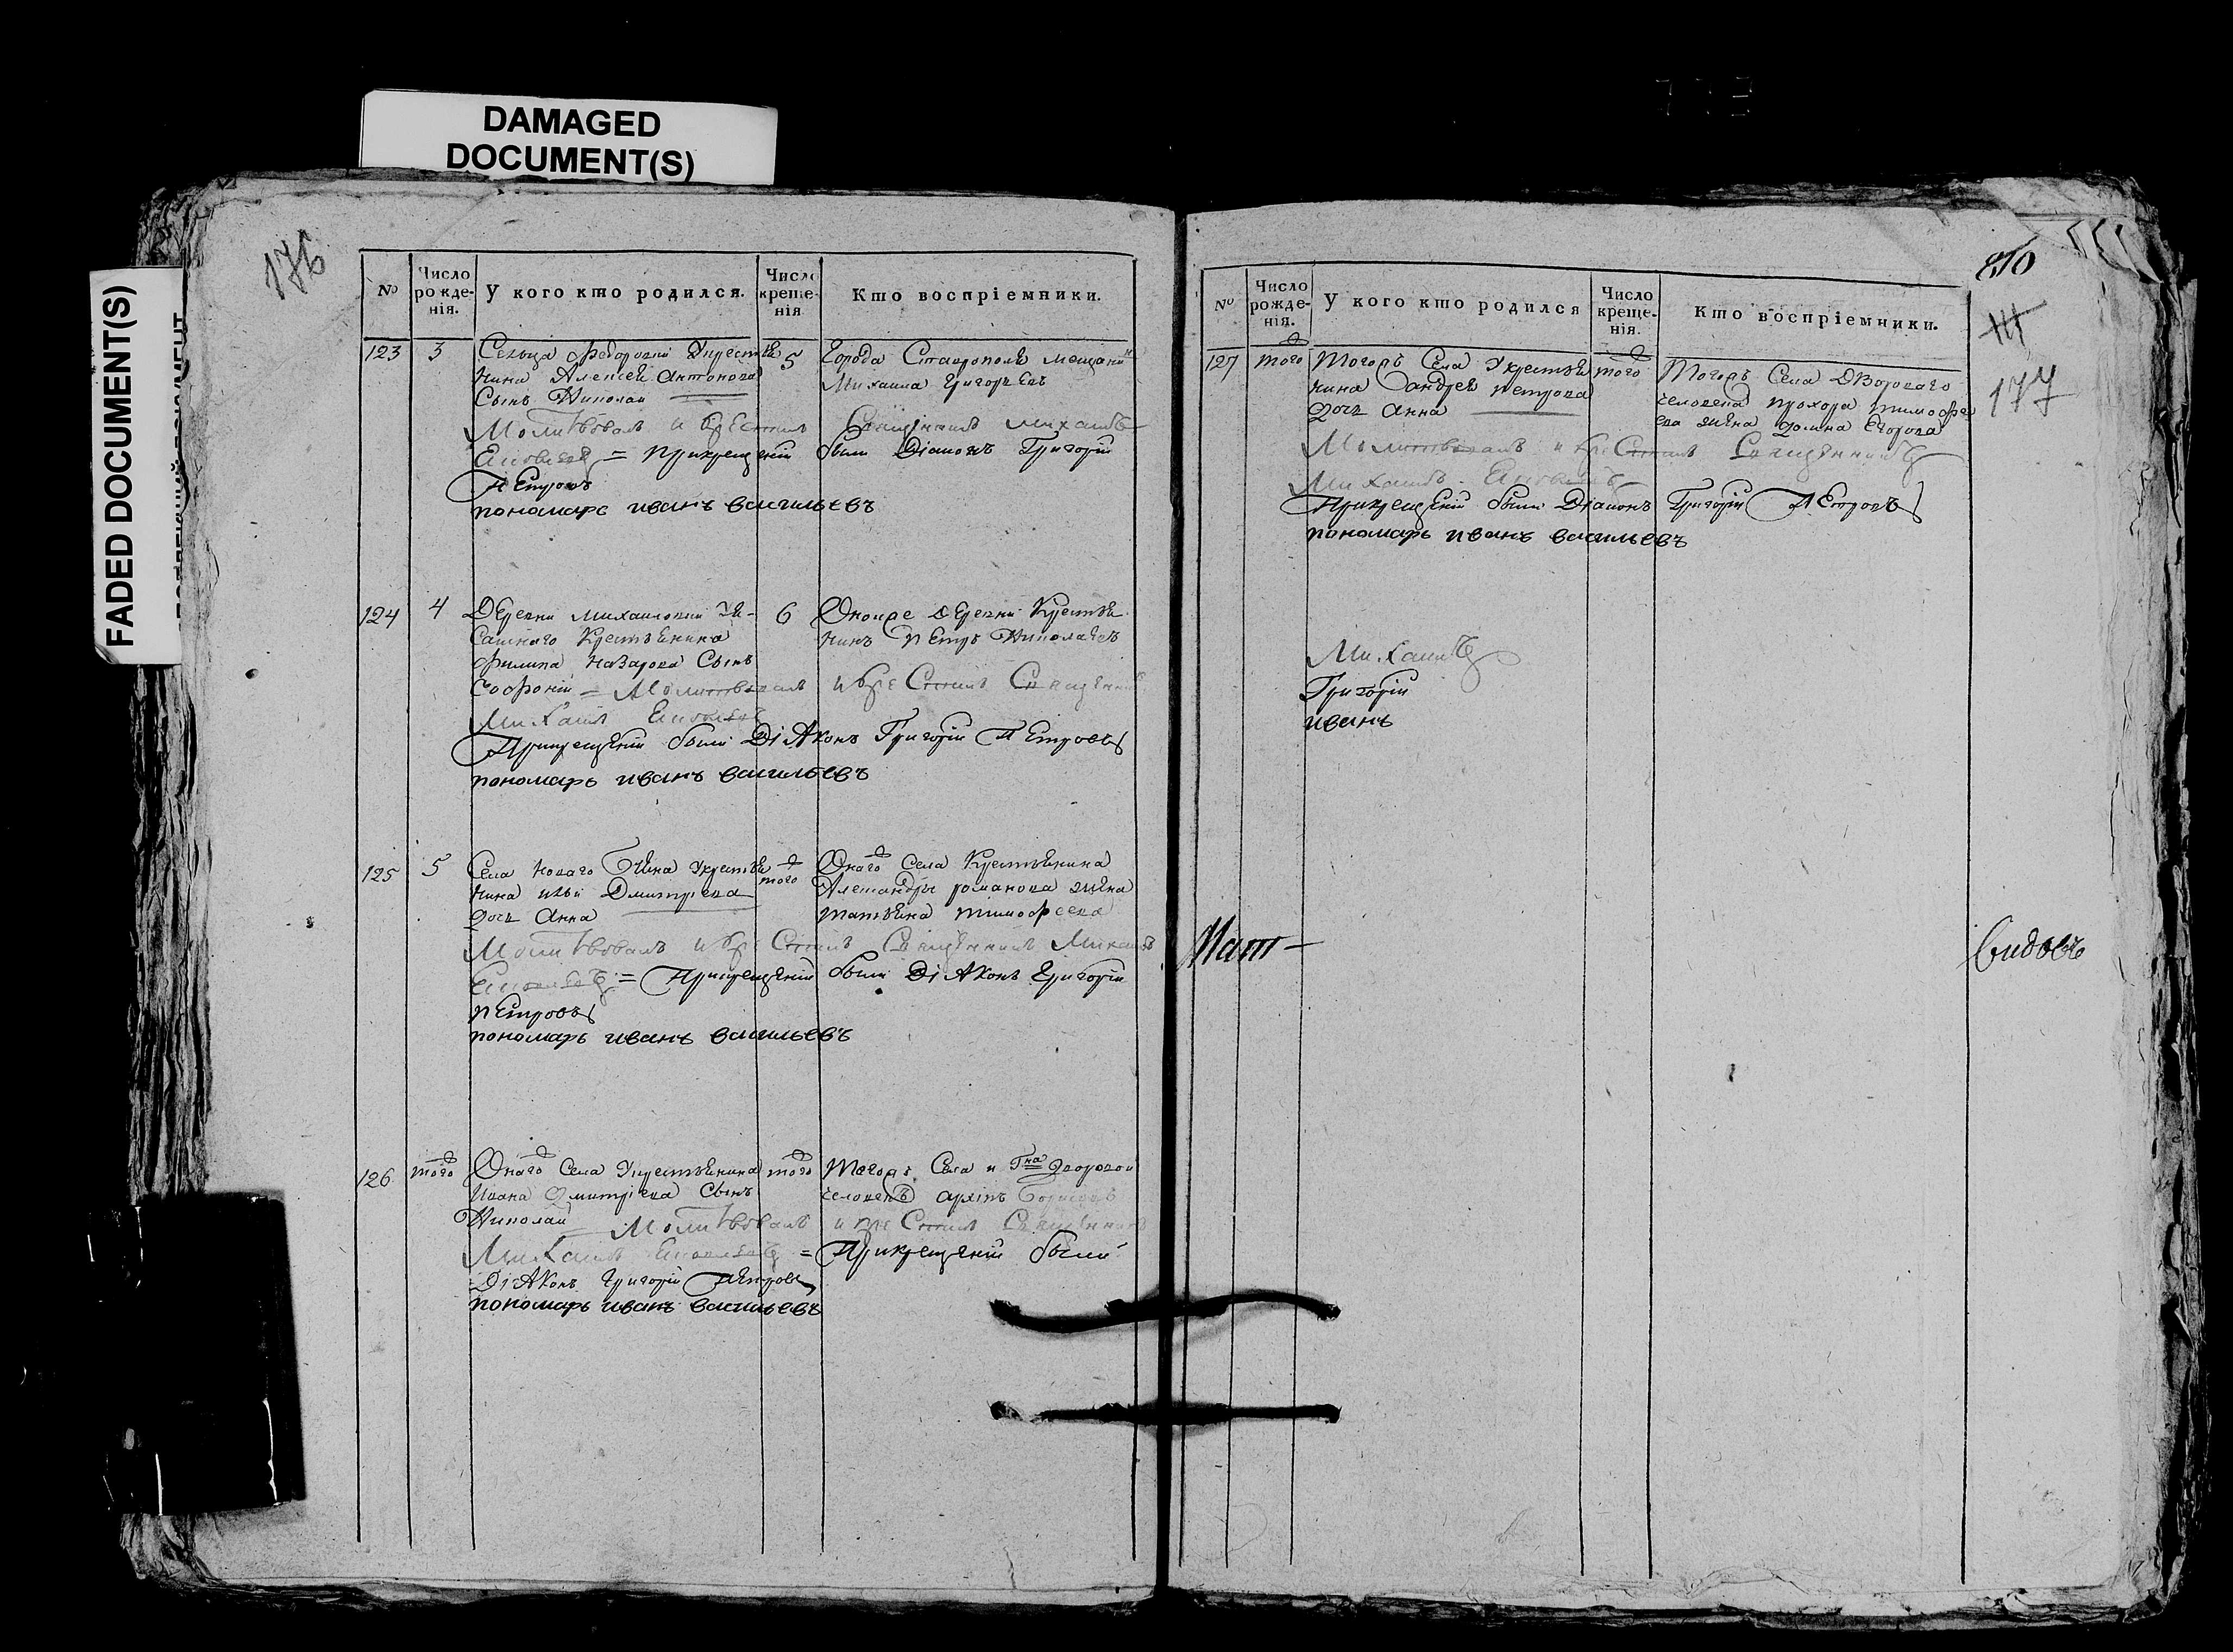 DAMAGED
DOCUMENT(S)
FADED DOCUMENT(S)
176
№
Число рожденія.
У кого кто родился.
Число крещенія
Кто воспріемники.
123
3
Сельца Федоровки Укрестья
нина Алексея Антонова
Сынъ Николай
5
Города Ставрополя мещанин
Михаила Григорьевъ
Молитвовалъ и крестилъ Священникъ Михаилъ
= Прикрещеніи были Діаконъ Григорій
Петровъ
пономарь иванъ васильевъ
124
4
Деревни Михайловки Уя-
сашнаго Крестьянина
Филипа Назарова Сынъ
Софроній =
6
Оной же деревни Крестья
нинъ Петръ Николаевъ
Молитвовалъ и крестилъ Священникъ
Михаилъ
Прикрещеніи были ДіАконъ Григорій Петровъ
пономарь иванъ васильевъ
125
5
Села Новаго Укрестья
нина ильи Дмитріева
дочь Анна
того
Онаго Села Крестьянина
Александры романова жена
татьяна тимофеева
Молитвовалъ и крестилъ Священникъ Михаилъ
= Прикрещеніи были ДіАконъ Григорій
Петровъ
пономарь иванъ васильевъ
126
того
Онаго Села Укрестьянина
Ивана Дмитріева Сынъ
Николай
того
Тогожъ Села и Гна дворовой
человекъ архипъ Борисовъ
Молитвовалъ и крестилъ Священникъ
Михаилъ = Прикрещеніи были
ДіАконъ Григорій Петровъ
пономарь иванъ васильевъ
810
177
№
Число рожденія.
У кого кто родился
Число крещенія.
Кто воспріемники.
127
того
Тогожъ Села Укрестья
нина андрея петрова
дочь Анна
того
Тогожъ Села Дворового
человека прохора тимофе
ева жена домна Егорова
Молитвовалъ и крестилъ Священникъ
Михаилъ
Прикрещеніи были Діаконъ Григорій Петровъ
пономарь иванъ васильевъ
Михаилъ
Григорій
иванъ